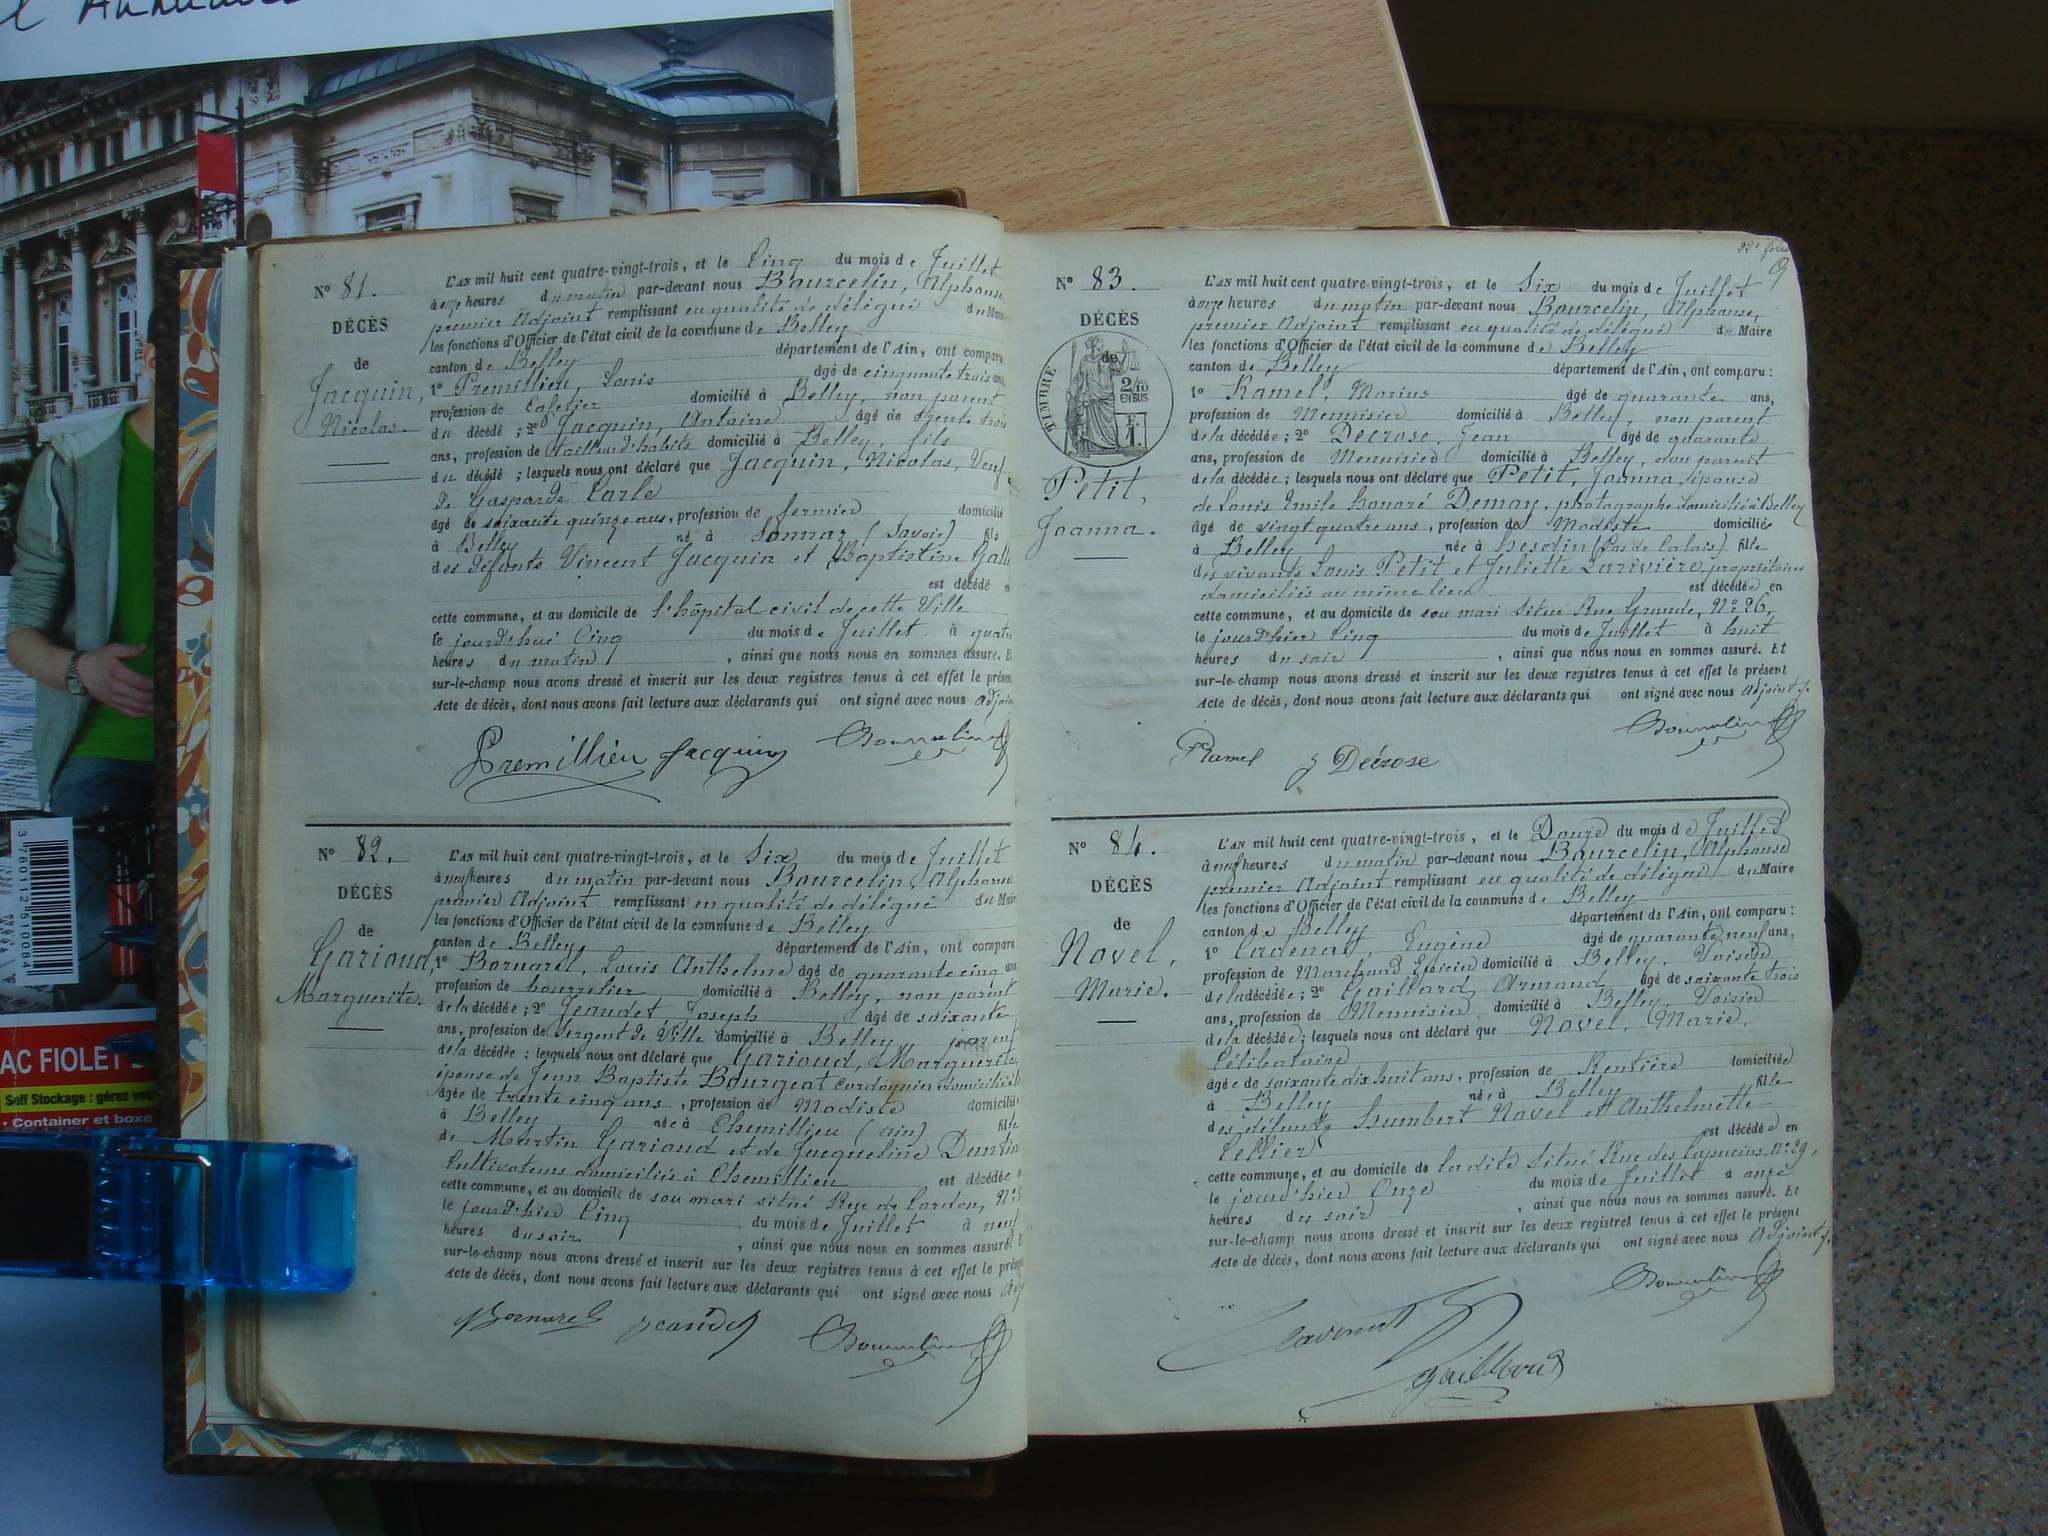 N° 81.
DÉCÈS
de
Jacquin,
Nicolas
L'AN mil huit cent quatre-vingt-trois, et le Cinq du mois de Juillet
à onze heures du matin par-devant nous Bourcelin, Alphonse
premier Adjoint remplissant en qualité de délégué du Maire
les fonctions d'Officier de l'état civil de la commune de Belley
canton de Belley département de l'Ain, ont comparu
1° Premillieu, Louis âgé de cinquante trois ans
profession de Cafetier domicilié à Belley, non parent
du décédé ; 2° Jacquin, Antoine âgé de trente trois
ans, profession de tailleur d'habits domicilié à Belley, fils
du décédé ; lesquels nous ont déclaré que Jacquin, Nicolas, Veuf
de Gasparde Carle
âgé de soixante quinze ans, profession de fermier domicilié
à Belley né à Sonnaz (Savoie) fils
des défunts Vincent Jacquin et Baptistine
est décédé
cette commune, et au domicile de l'hôpital civil de cette Ville
le jourd'hui Cinq du mois de Juillet à quatre
heures du matin, ainsi que nous nous en sommes assuré. E
sur-le-champ nous avons dressé et inscrit sur les deux registres tenus à cet effet le présen
Acte de décès, dont nous avons fait lecture aux déclarants qui ont signé avec nous Adjoin
Premillieu Jacquin Bourcelin
N° 82.
DÉCÈS
de
Garioud,
Marguerite.
L'AN mil huit cent quatre-vingt-trois, et le Six du mois de Juillet
à neuf heures du matin par-devant nous Bourcelin, Alphonse
premier Adjoint remplissant en qualité de délégué du Mair
les fonctions d'Officier de l'état civil de la commune de Belley
canton de Belley département de l'Ain, ont comparu
1° Bornarel, Louis Anthelme âgé de quarante cinq ans
profession de bourrelier domicilié à Belley, non parent
de la décédée ; 2° Jeandet, Joseph âgé de soixante
ans, profession de Sergent de Ville domicilié à Belley
de la décédée ; lesquels nous ont déclaré que Garioud, Marguerite
épouse de Jean Baptiste Bourgeat cordonnier domicilié
âgée de trente cinq ans, profession de Modiste domicilié
à Belley née à Chemillieu (Ain) fille
de Martin Garioud et de Jacqueline
Cultivateurs domiciliés à Chemillieu est décédée
cette commune, et au domicile de son mari situé Rue de Lardon, N°
le jourd'hier Cinq du mois de Juillet à neuf
heures du soir, ainsi que nous nous en sommes assuré. E
sur-le-champ nous avons dressé et inscrit sur les deux registres tenus à cet effet le prése
Acte de décès, dont nous avons fait lecture aux déclarants qui ont signé avec nous
Bornarel Jeandet Bourcelin
N° 83.
DÉCÈS
de
TIMBRE
2/10
EN SUS
Petit,
Joanna.
L'AN mil huit cent quatre-vingt-trois, et le Six du mois de Juillet
à onze heures du matin par-devant nous Bourcelin, Alphonse,
premier Adjoint remplissant en qualité de délégué du Maire
les fonctions d'Officier de l'état civil de la commune de Belley
canton de Belley département de l'Ain, ont comparu :
1° Ramel, Marius âgé de quarante ans,
profession de Menuisier domicilié à Belley, non parent
de la décédée ; 2° Décrose, Jean âgé de quarante
ans, profession de Menuisier domicilié à Belley, non parent
de la décédée ; lesquels nous ont déclaré que Petit, Joanna, épouse
de Louis Emile honoré Demay, photographe domicilié à Belley
âgé de vingt quatre ans, profession de Modiste domiciliée
à Belley née à hesdin (Pas de Calais) fille
des vivants Louis Petit et Juliette Larivière, propriétaires
domiciliés au même lieu est décédée en
cette commune, et au domicile de son mari situé Rue Grande, N° 26,
le jourd'hier Cinq du mois de Juillet à huit
heures du soir, ainsi que nous nous en sommes assuré. Et
sur-le-champ nous avons dressé et inscrit sur les deux registres tenus à cet effet le présent
Acte de décès, dont nous avons fait lecture aux déclarants qui ont signé avec nous Adjoint
Ramel J Décrose Bourcelin
N° 84.
DÉCÈS
de
Navel,
Marie.
L'AN mil huit cent quatre-vingt-trois, et le Douze du mois de Juillet
à neuf heures du matin par-devant nous Bourcelin, Alphonse
premier Adjoint remplissant en qualité de délégué du Maire
les fonctions d'Officier de l'état civil de la commune de Belley
canton de Belley département de l'Ain, ont comparu :
1° Cadenat, Eugène âgé de quarante neuf ans,
profession de Marchand Epicier domicilié à Belley, Voisin
de la décédée ; 2° Gaillard, Armand âgé de soixante trois
ans, profession de Menuisier domicilié à Belley, Voisin
de la décédée ; lesquels nous ont déclaré que Navel, Marie,
Célibataire
âgée de soixante dix huit ans, profession de Rentière domiciliée
à Belley née à Belley fille
des défunts humbert Navel et Anthelmette
Cellier est décédée en
cette commune, et au domicile de la dite situé Rue des Capucins, n° 29,
le jourd'hier Onze du mois de Juillet à onze
heures du soir, ainsi que nous nous en sommes assuré. Et
sur-le-champ nous avons dressé et inscrit sur les deux registres tenus à cet effet le présent
Acte de décès, dont nous avons fait lecture aux déclarants qui ont signé avec nous Adjoint
Bourcelin
Gaillard
AC FIOLET
Self Stockage : gérez
• Container et boxe